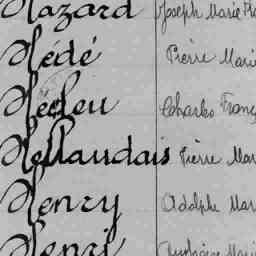 Hazard Joseph Marie Fra
Hédé Pierre Marie
Heleu Charles Franç
Hellaudais Pierre Mar
Henry Adolphe Mar
Henri Ambroise Marie